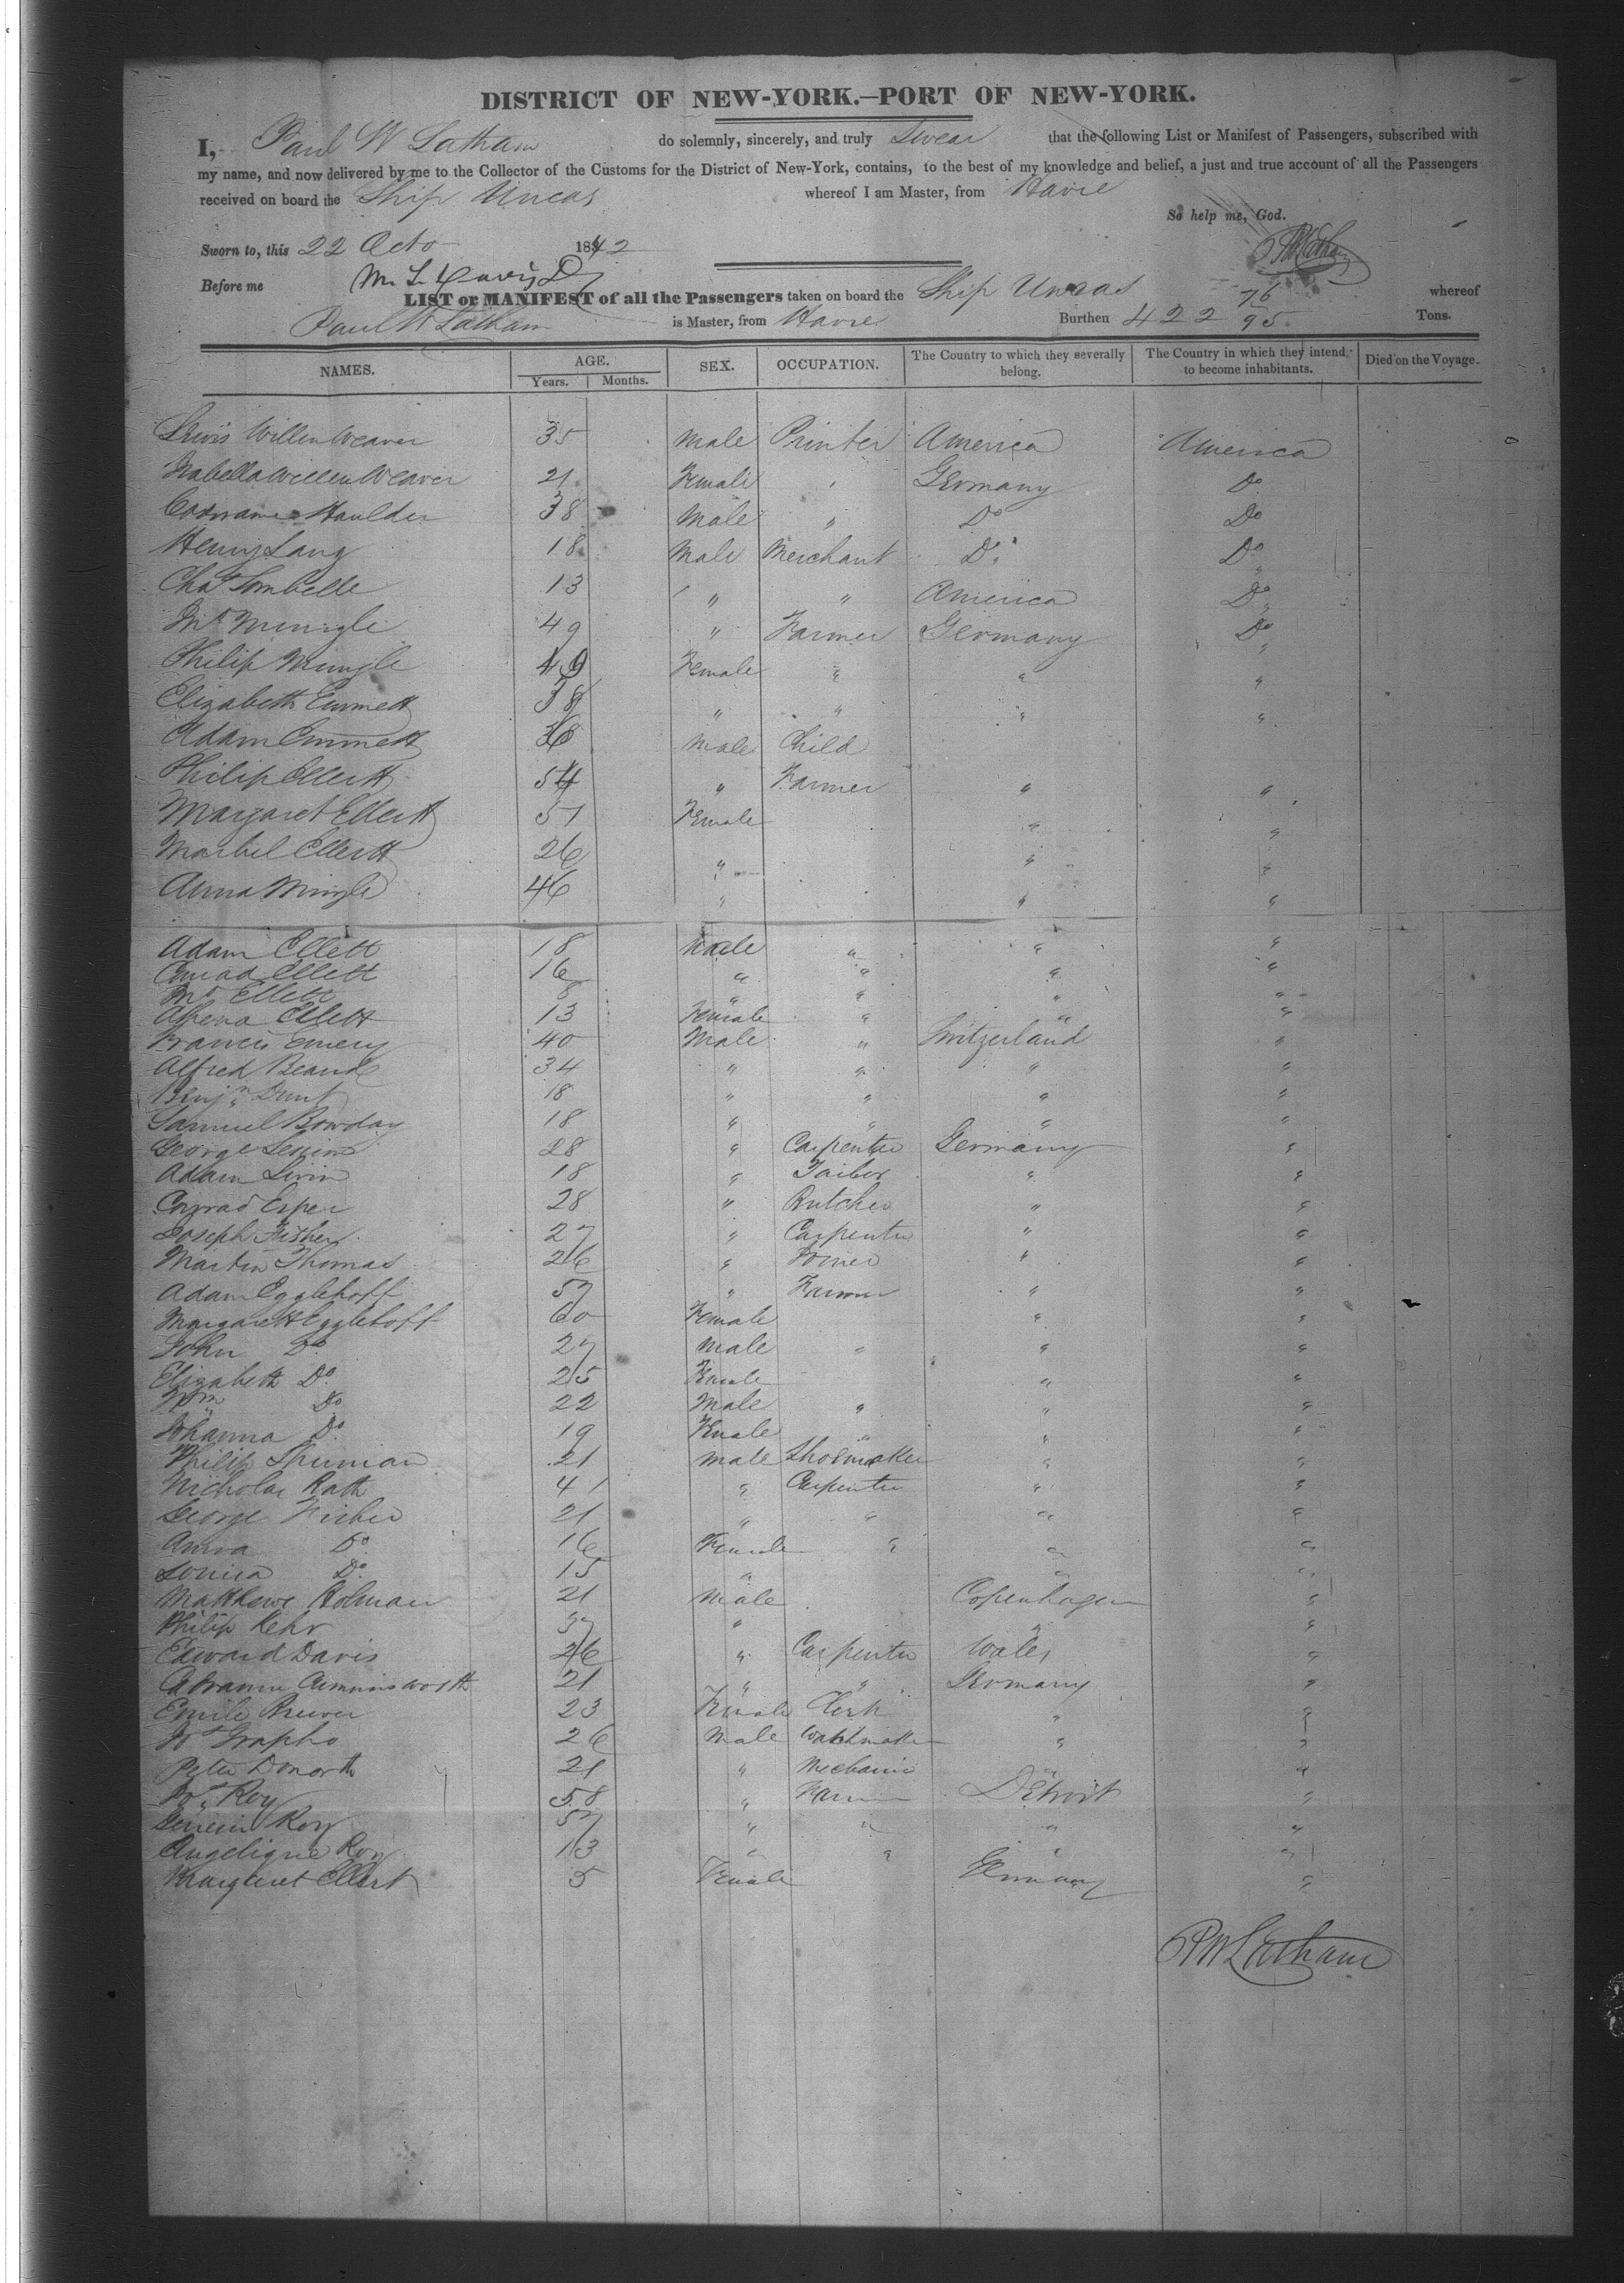 DISTRICT OF NEW-YORK.—PORT OF NEW-YORK.
I, Paul W Latham do solemnly, sincerely, and truly Swear that the following List or Manifest of Passengers, subscribed with
my name, and now delivered by me to the Collector of the Customs for the District of New-York, contains, to the best of my knowledge and belief, a just and true account of all the Passengers
received on board the Ship Uncas whereof I am Master, from Havre
So help me, God.
Sworn to, this 22 Octo 1842 PW Latham
Before me M. L. Davis
LIST or MANIFEST of all the Passengers taken on board the Ship Uncas whereof
Paul W Latham is Master, from Havre Burthen 422 76/95 Tons.
NAMES. AGE. Years. Months. SEX. OCCUPATION. The Country to which they severally belong. The Country in which they intend to become inhabitants. Died on the Voyage.
Lewis Willen Weaver 35 Male Printer America America
Isabella Willen Weaver 21 Female " Germany Do
Haulder 38 Male " Do Do
Henry Lang 18 Male Merchant Do Do
Chas Tombelle 13 " " America Do
49 " Farmer Germany Do
Philip Mungle 49 Female " " "
Elizabeth Emmett 38 " " " "
Adam Emmett Male Child
Philip Ellertt 54 " Farmer " "
Margaret Ellertt 51 Female " "
Ellertt 26 " " "
Anna Mingle 46 " " "
Adam Ellett 18 Male " " "
Conrad Ellett 16 " " " "
Ellett 8 " " " "
Ellett 13 Female " " "
Francis Emery 40 Male " Switzerland "
Alfred Beaude 34 " " " "
Benjn Dunt 18 " " " "
Samuel Bowday 18 " " " "
George 28 " Carpenter Germany "
Adam 18 " Tailor " "
Conrad Esper 28 " Butcher " "
Joseph Fisher 27 " Carpenter " "
Martin Thomas 26 " Joiner " "
Adam Egglehoff 57 " Farmer " "
Margarett Egglehoff 60 Female " "
John Do 27 Male " " "
Elizabeth Do 25 Female " "
Wm Do 22 Male " " "
Johanna Do 19 Female " " "
Philip 21 Male Shoemaker " "
Nicholas Rath 41 " Carpenter " "
George Fisher 21 " " " "
Anna Do 16 Female " " "
Do 15 " " "
Matthew Holman 21 Male Copenhagen "
Philip Kehr 37 " " "
Edward Davis 26 " Carpenter Wales "
21 " " Germany "
Emile Brewer 23 Female Clerk " "
26 Male Watchmaker " "
Peter Donorth 21 " Mechanic " "
Roy 58 " Farmer Detroit "
Roy 57 " " " "
Angelique Roy 13 " " " "
Margaret Ellert 5 Female Germany "
PW Latham